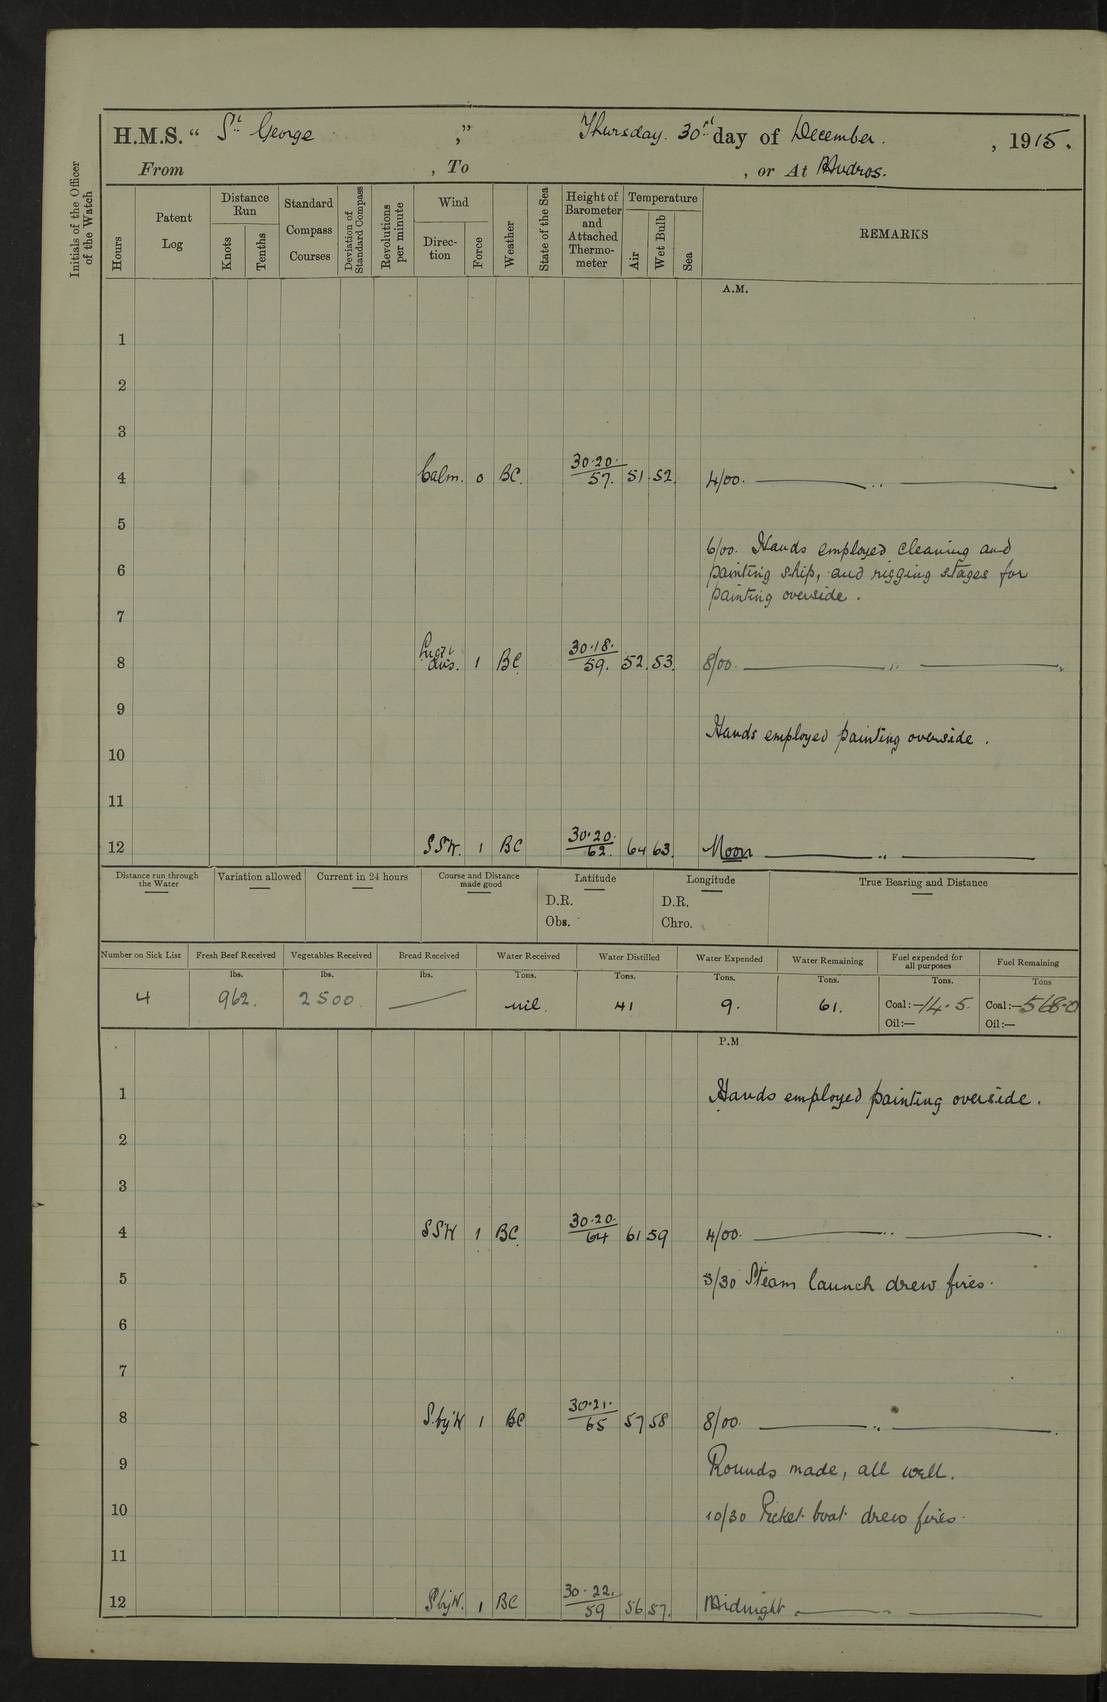 H.M.S. “ St George ,” Thursday. 30st day of December. , 1915.
From , To , or At Mudros.
Initials of the Officer
of the Watch
Hours
Patent
Log
Distance
Run
Knots
Tenths
Standard
Compass
Courses
Deviation of
Standard Compass
Revolutions
per minute
Wind
Direc-
tion
Force
Weather
State of the Sea
Height of
Barometer
and
Attached
Thermo-
meter
Temperature
Air
Wet Bulb
Sea
REMARKS
A.M.
1
2
3
4 Calm. 0 BC. 30.20. 57. 51. 52. 4/00. ,,
5
6/00. Hands employed cleaning and
6 painting ship, and rigging stages for
painting overside.
7
8 airs. 1 BC. 30.18. 59. 52. 53. 8/00. ,,
9
Hands employed painting overside.
10
11
12 SSW. 1 BC 30.20. 62. 64 63. Noon ,,
Distance run through
the Water
Variation allowed
Current in 24 hours
Course and Distance
made good
Latitude
D.R.
Obs.
Longitude
D.R.
Chro.
True Bearing and Distance
Number on Sick List
4
Fresh Beef Received
lbs.
962.
Vegetables Received
lbs.
2500.
Bread Received
lbs.
Water Received
Tons.
nil.
Water Distilled
Tons.
41
Water Expended
Tons.
9.
Water Remaining
Tons.
61.
Fuel expended for
all purposes
Tons.
Coal:— 14.5.
Oil:—
Fuel Remaining
Tons
Coal:— 568.0
Oil:—
P.M
1 Hands employed painting overside.
2
3
4 SSW 1 BC. 30.20. 64 61 59 4/00. ,,
5 /30 Steam launch drew fires.
6
7
8 S.by'W 1 BC 30.21. 65 57 58 8/00. ,,
9 Rounds made, all well.
10 10/30 Picket boat drew fires.
11
12 S by W. 1 BC 30.22. 59 56 57. Midnight ,,